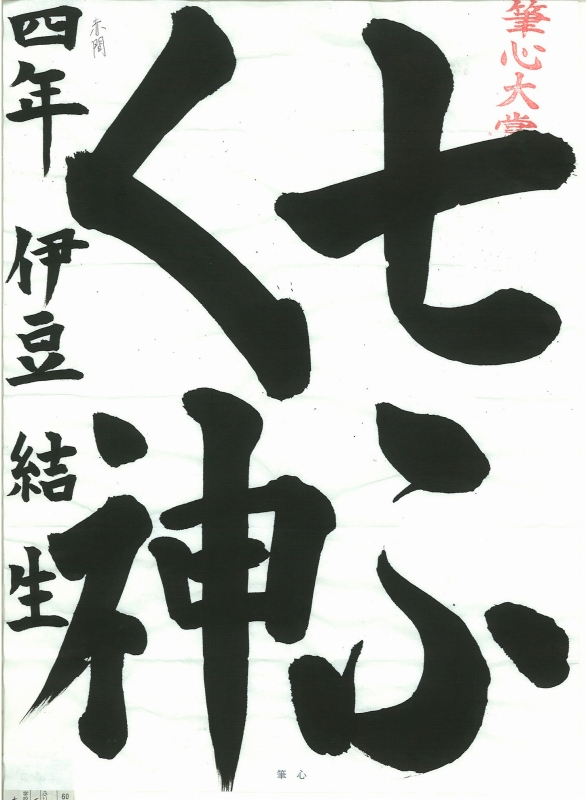 筆心大賞
七ふ
く神
四年 伊豆 結生
筆 心
60